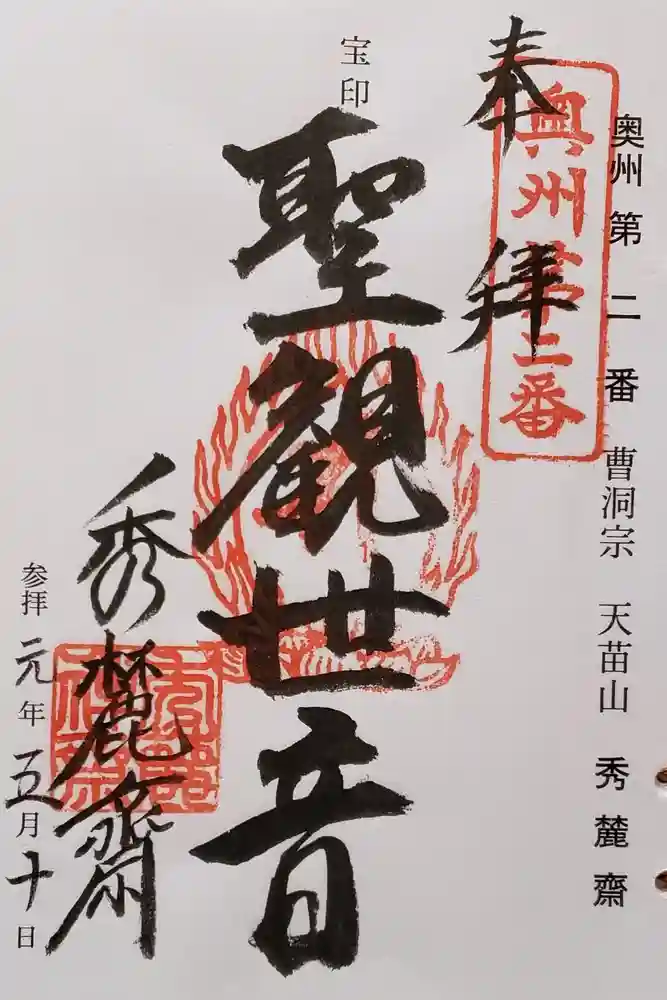 奥州第二番 曹洞宗 天苗山 秀麓齋
奉拝
奥州第二番
宝印
聖観世音
秀麓齋
参拝 元年五月十日